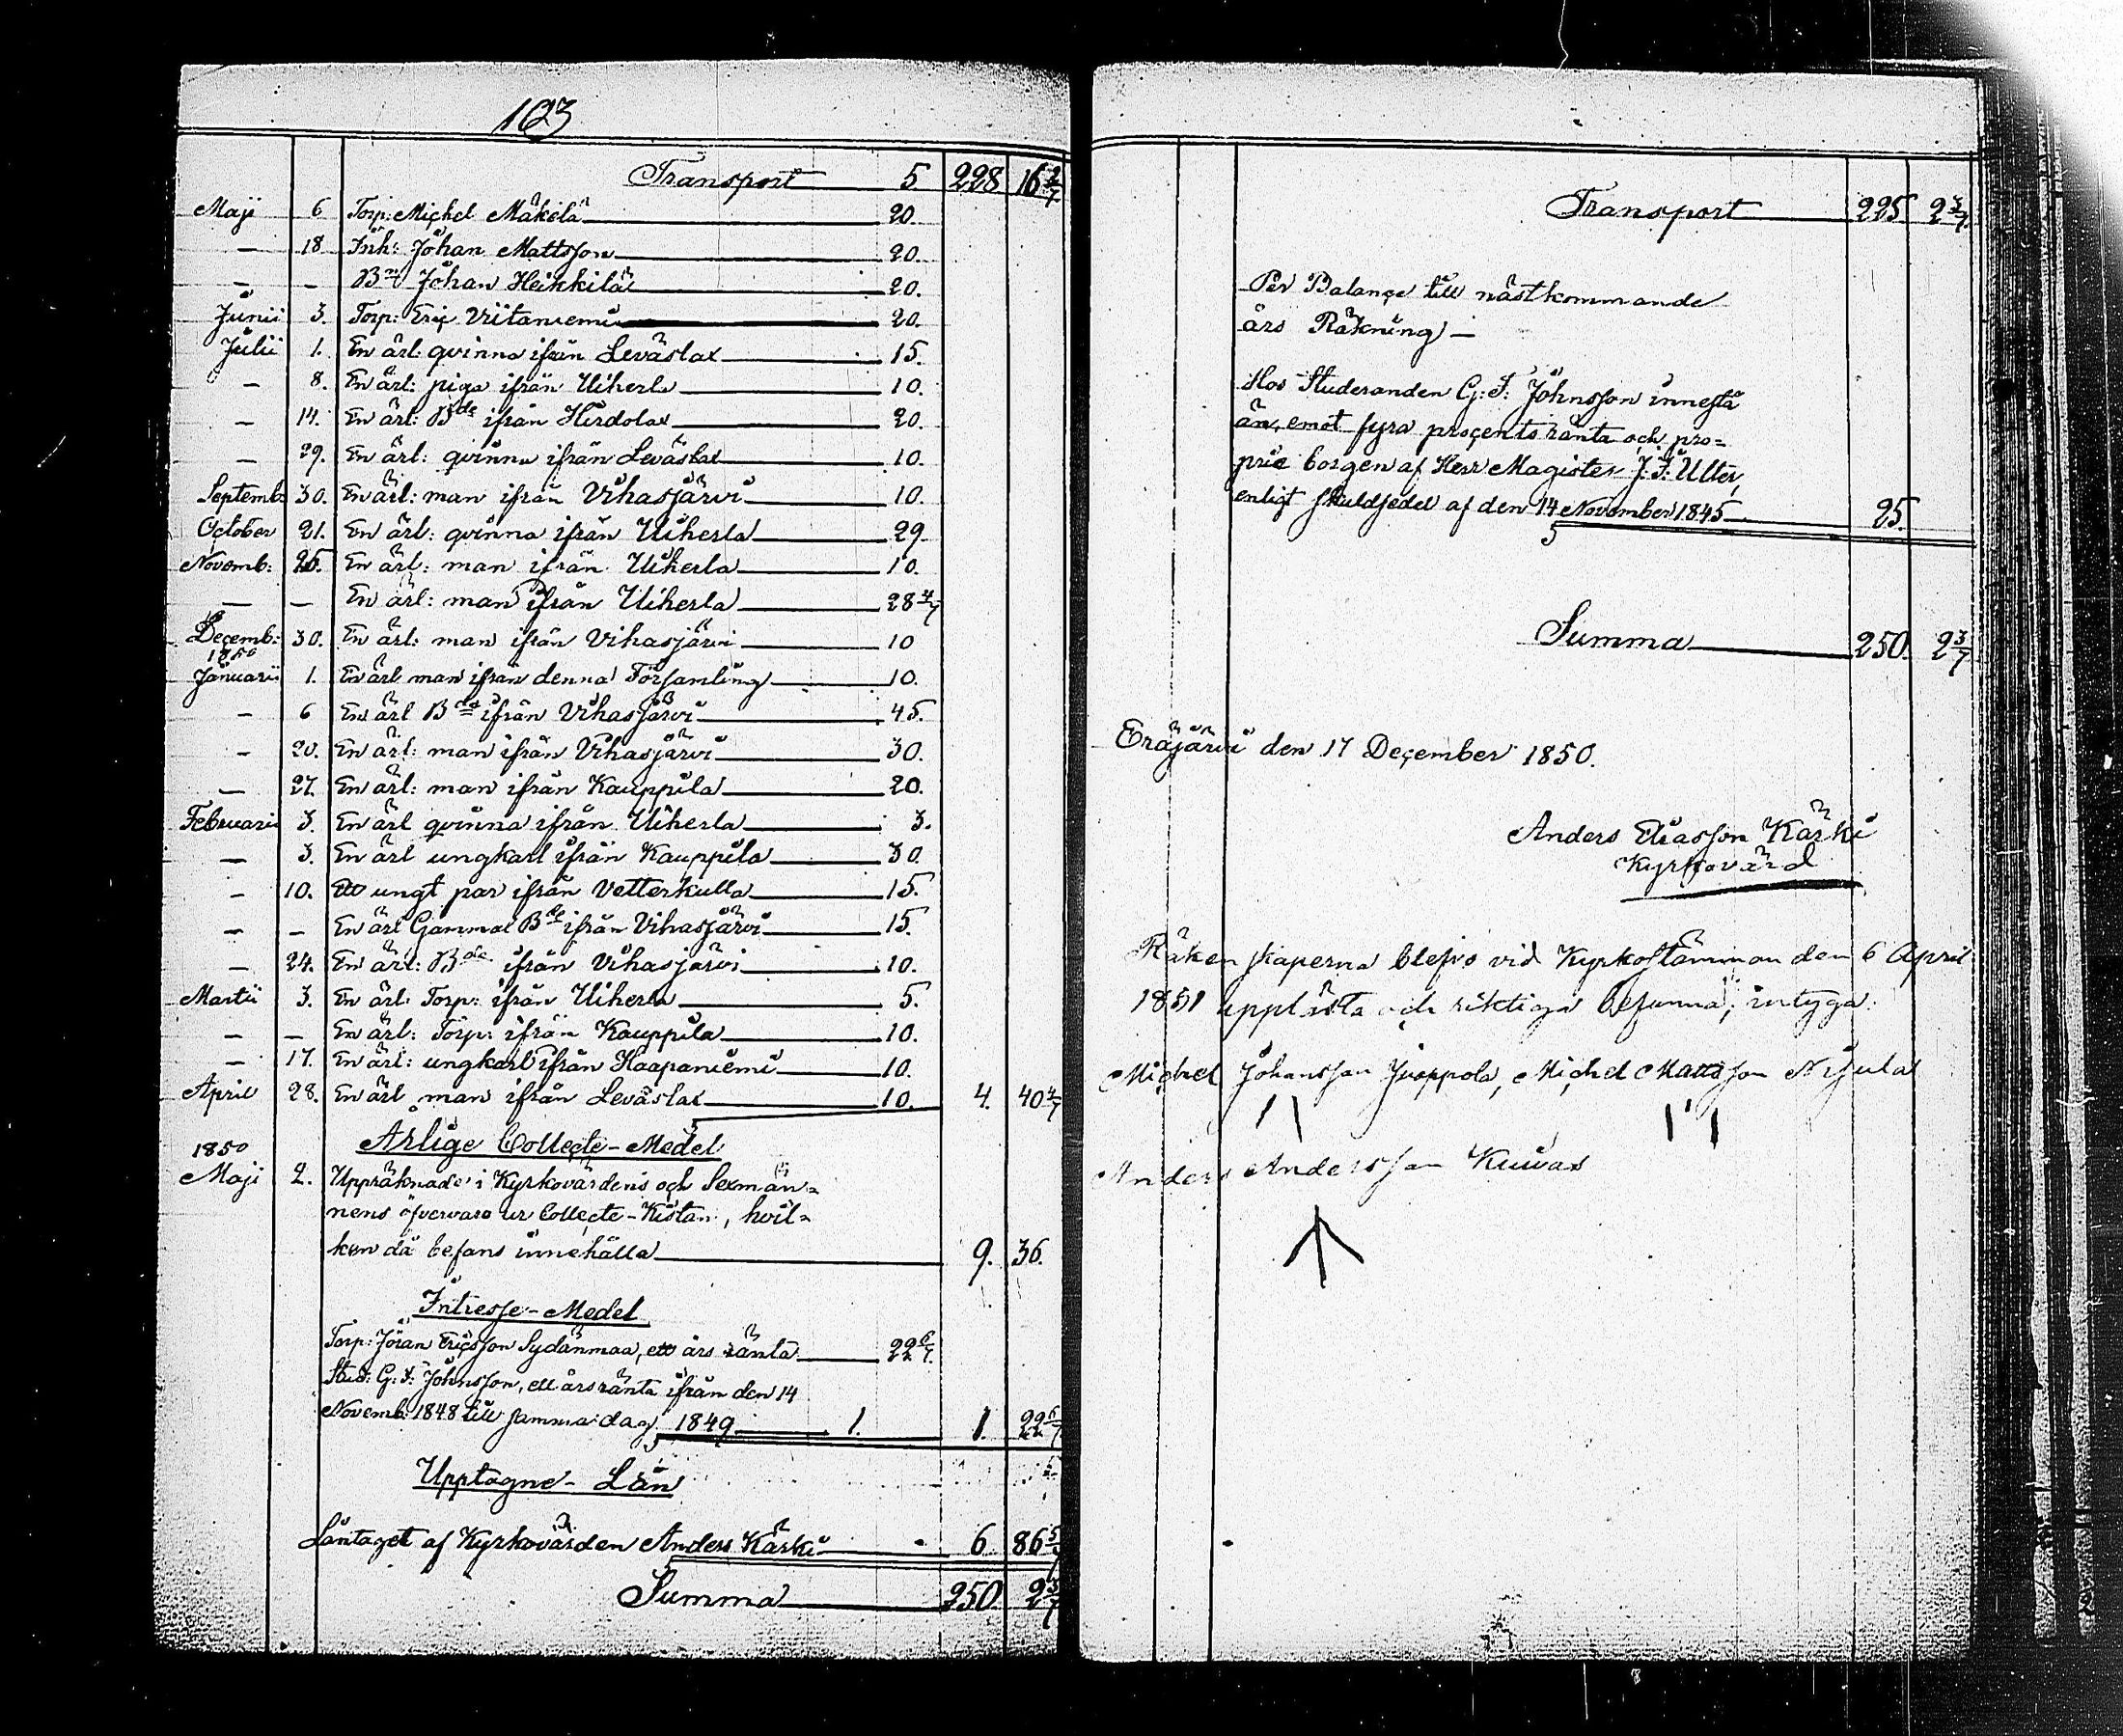 103
Transport 5 228 16 2/7
Maji 6 Torp: Michel Mäkelä 20.
— 18 Inh: Johan Mattsson 20.
— — Bn Johan Heikkilä 20.
Junii 3. Torp: Eric Viitaniemi 20.
Julii 1. En ärl: qvinna ifrån Leväslax 15.
— 8. En ärl: piga ifrån Uiherla 10.
— 14. En ärl: Bde ifrån Hirdolax 20.
— 29. En ärl: qvinna ifrån Leväslax 10.
Septemb: 30. En ärl: man ifrån Vihasjärvi 10.
October 21. En ärl: qvinna ifrån Uiherla 29
Novemb: 25. En ärl: man ifrån Uiherla 10.
— — En ärl: man ifrån Uiherla 28 4/7
Decemb: 30. En ärl: man ifrån Vihasjärvi 10
1850
Januarii 1. En ärl man ifrån denna Församling 10.
— 6 En ärl Bde ifrån Vihasjärvi 45.
— 20. En ärl: man ifrån Vihasjärvi 30.
— 27. En ärl: man ifrån Kauppila 20.
Februarii 3. En ärl qvinna ifrån Uiherla 3.
— 3. En ärl ungkarl ifrån Kauppila 30.
— 10. Ett ungt par ifrån Vetterkulla 15.
— — En ärl Gammal Bde ifrån Vihasjärvi 15.
— 24. En ärl: Bde ifrån Vihasjärvi 10.
Martii 3. En ärl: Torp: ifrån Uiherla 5.
— — En ärl: Torp: ifrån Kauppila 10.
— 17. En ärl: ungkarl ifrån Haapaniemi 10.
April 28. En ärl man ifrån Leväslax 10. 4. 40 4/7
Årlige Collecte-Medel
1850
Maji 2. Uppräknades i Kyrkovärdens och Sexmän=
nens öfvervaro ur Collecte-Kistan, hvil=
ken då befans innehålla 9. 36.
Intresse-Medel
Torp: Jöran Ericsson Sydänmaa, ett års ränta 22 6/7.
Stud: G: F: Johnsson, ett års ränta ifrån den 14
Novemb: 1848 till samma dag 1849 1. 1. 22 6/7
Upptagne-Lån
Låntaget af Kyrkovärden Anders Kärki 6 86 5/7
Summa 250. 2 3/7
Transport 225 2 3/7.
Per Balance till nästkommande
års Räkning —
Hos Studeranden G: F: Johnsson innestå
än, emot fyra procents ränta och pro=
prie borgen af Herr Magister J. F. Ulter,
enligt skuldsedel af den 14 November 1845 25.
Summa 250. 2 3/7
Eräjärvi den 17 December 1850.
Anders Eliasson Kärki
Kyrkovärd
Räkenskaperna blefvo vid Kyrkostämman den 6 April
1851 upplästa och riktiga befunna; intyga:
Michel Johansson Juoppola, Michel Mattsson Nijula
Anders Andersson Kuivas